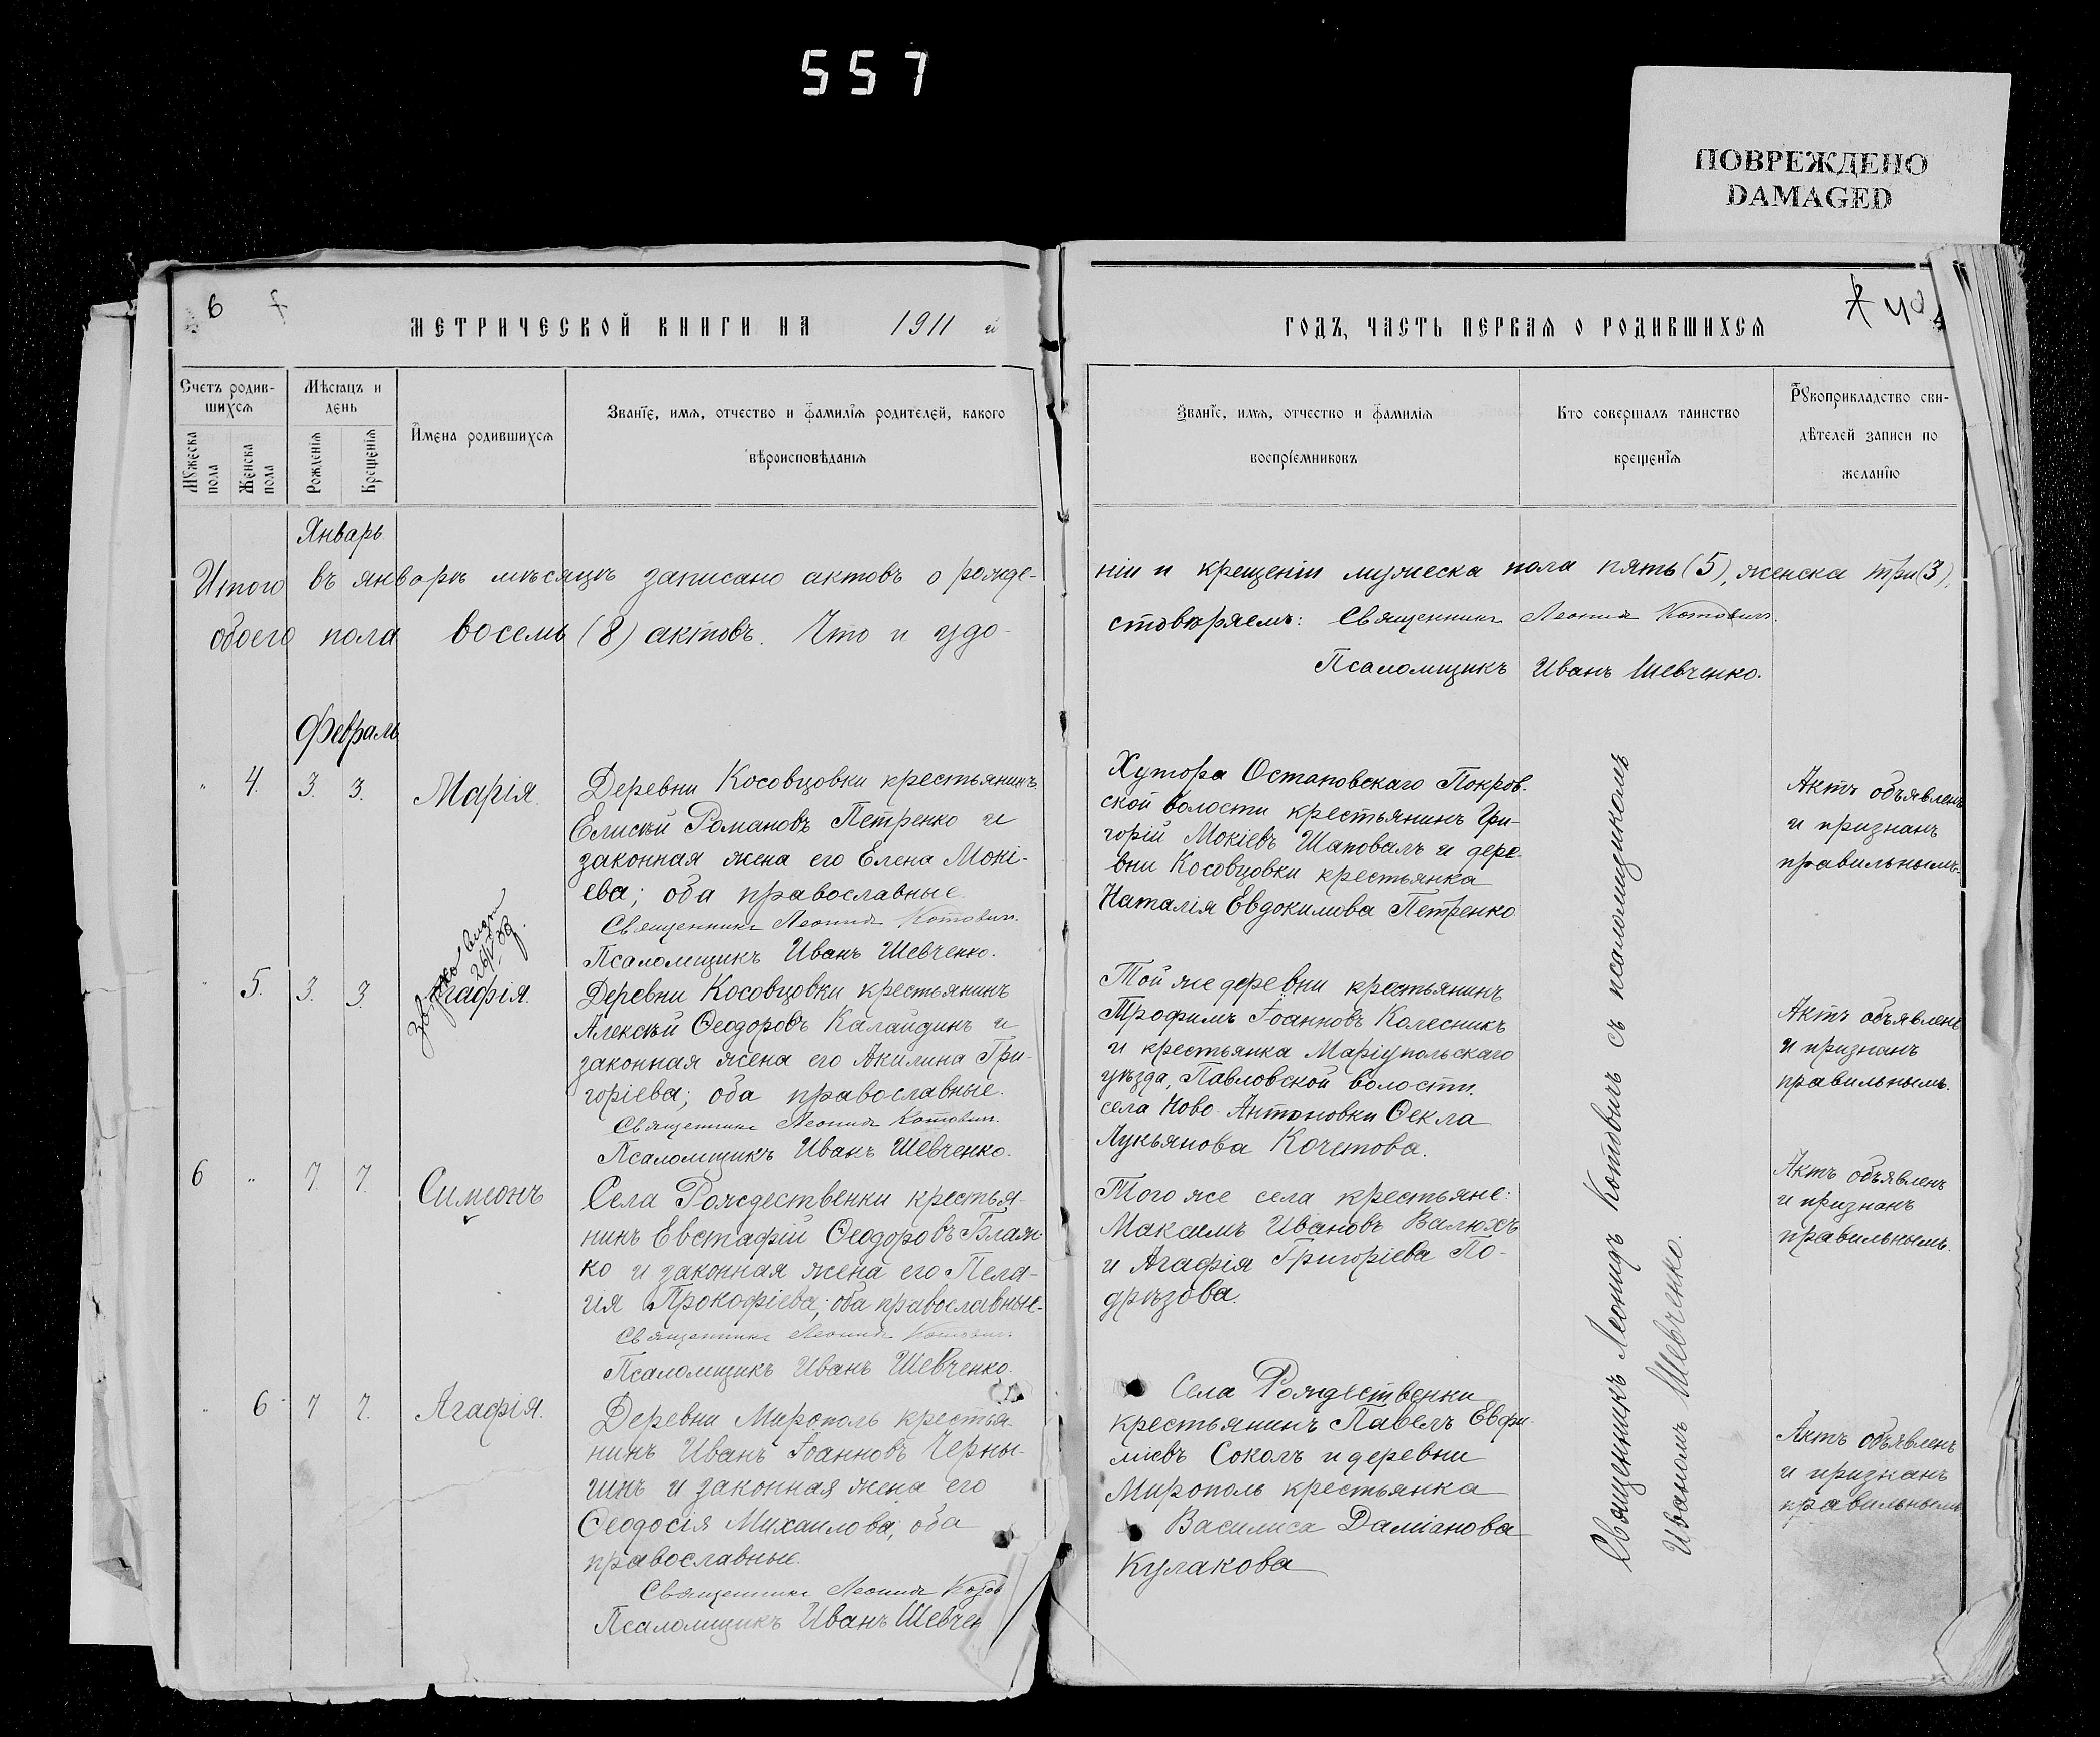 557
ПОВРЕЖДЕНО
DAMAGED
6
МЕТРИЧЕСКОЙ КНИГИ НА 1911 й
Счетъ родив-
шихся
Мужеска
пола
Женска
пола
Мѣсяцъ и
день
Рожденїя
Крещенїя
Имена родившихся
Званїе, имя, отчество и фамилїя родителей, какого
вѣроисповѣданїя
Январь
Итого въ январѣ мѣсяцѣ записано актовъ о рожде-
обоего пола восемь (8) актовъ. Что и удо-
Февраль
" 4. 3. 3. Марія.
Деревни Косовцовки крестьянинъ
Елисѣй Романовъ Петренко и
законная жена его Елена Мокі-
ева; оба православные.
Священникъ Леонидъ Котовичъ.
Псаломщикъ Иванъ Шевченко.
" 5. 3. 3. Агафія.
Деревни Косовцовки крестьянинъ
Алексѣй Ѳеодоровъ Калайдинъ и
законная жена его Акилина Гри-
горіева; оба православные.
Священникъ Леонидъ Котовичъ.
Псаломщикъ Иванъ Шевченко.
6 " 7. 7. Симеонъ
Села Рождественки крестья-
нинъ Евстафій Ѳеодоровъ Блаж-
ко и законная жена его Пела-
гія Прокофіева; оба православные.
Священникъ Леонидъ Котовичъ
Псаломщикъ Иванъ Шевченко.
" 6 7 7. Агафія.
Деревни Мирополь крестья-
нинъ Иванъ Іоанновъ Черны-
шинъ и законная жена его
Ѳеодосія Михаилова; оба
православные.
Священникъ Леонидъ Котов
Псаломщикъ Иванъ Шевчен
ГОДЪ, ЧАСТЬ ПЕРВАЯ О РОДИВШИХСЯ
Званїе, имя, отчество и фамилїя
воспрїемниковъ
Кто совершалъ таинство
крещенїя
Рукоприкладство сви-
дѣтелей записи по
желанїю
ніи и крещеніи мужеска пола пять (5), женска три (3),
стовѣряемъ: Священникъ Леонидъ Котовичъ.
Псаломщикъ Иванъ Шевченко.
Хутора Остановскаго Покров-
ской волости крестьянинъ Гри-
горій Мокіевъ Шаповалъ и дере-
вни Косовцовки крестьянка
Наталія Евдокимова Петренко
Актъ объявленъ
и признанъ
правильнымъ.
Той же деревни крестьянинъ
Трофимъ Іоанновъ Колесникъ
и крестьянка Маріупольскаго
уѣзда, Павловской волости,
села Ново-Антоновки Ѳекла
Лукьянова Кочетова.
Актъ объявленъ
и признанъ
правильнымъ.
Того же села крестьяне:
Максимъ Ивановъ Валюхъ
и Агафія Григоріева По-
дрѣзова.
Актъ объявленъ
и признанъ
правильнымъ.
Села Рождественки
крестьянинъ Павелъ Евфи-
міевъ Соколъ и деревни
Мирополь крестьянка
Василиса Даміанова
Кулакова
Актъ объявленъ
и признанъ
правильнымъ
Священникъ Леонидъ Котовичъ съ псаломщикомъ
Иваномъ Шевченко.